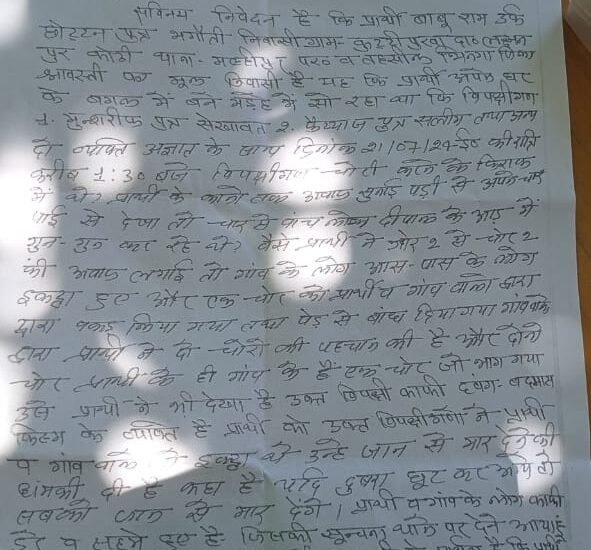 सविनय निवेदन है कि प्रार्थी बाबू राम उर्फ
छोट्टन पुत्र भगौती निवासी ग्राम- कटही पुरवा दा० लक्ष्मन
पुर कोठी थाना- मल्हीपुर पर० व तहसील भिनगा जिला
श्रावस्ती का मूल निवासी है यह कि प्रार्थी अपने घर
के बगल में बने मड़हे में सो रहा था कि विपक्षीगण
1. मुन्शरीफ पुत्र सेखावत 2. फैय्याज पुत्र सलीम तथा अन्य
दो व्यक्ति अज्ञात के साथ दिनांक 21/07/24-ई० की रात्रि
करीब 1:30 बजे विपक्षीगण चोरी करने के फिराक
में थे। प्रार्थी के कानो तक आवाज सुनाई पड़ी से अपने चार
पाई से देखा तो चार से पांच लोग दीवाल के आड़ में
गुन-गुन कर रहे थे। वैसे प्रार्थी ने जोर 2 से चोर 2
की आवाज लगाई तो गांव के लोग आस-पास के लोग
इकट्ठा हुए और एक चोर को प्रार्थी व गांव वालो द्वारा
द्वारा पकड़ लिया गया तथा पेड़ से बांध दिया गया गांव वालो
द्वारा प्रार्थी ने दो चोरों की पहचान की है और दोनो
चोर प्रार्थी के ही गांव के हैं एक चोर जो भाग गया
उसे प्रार्थी ने भी देखा है उक्त विपक्षी काफी दबंग- बदमाश
किस्म के व्यक्ति है प्रार्थी को उक्त विपक्षीगणों ने प्रार्थी
व गांव वाले इकट्ठा थे उन्हे जान से मार देने की
धमकी दी है कहा है यदि छूट कर आये तो
सबको जान से मार देंगे। प्रार्थी व गांव के लोग काफी
डरे व सहमे हुए है जिसकी सूचना थाने पर देने आया है